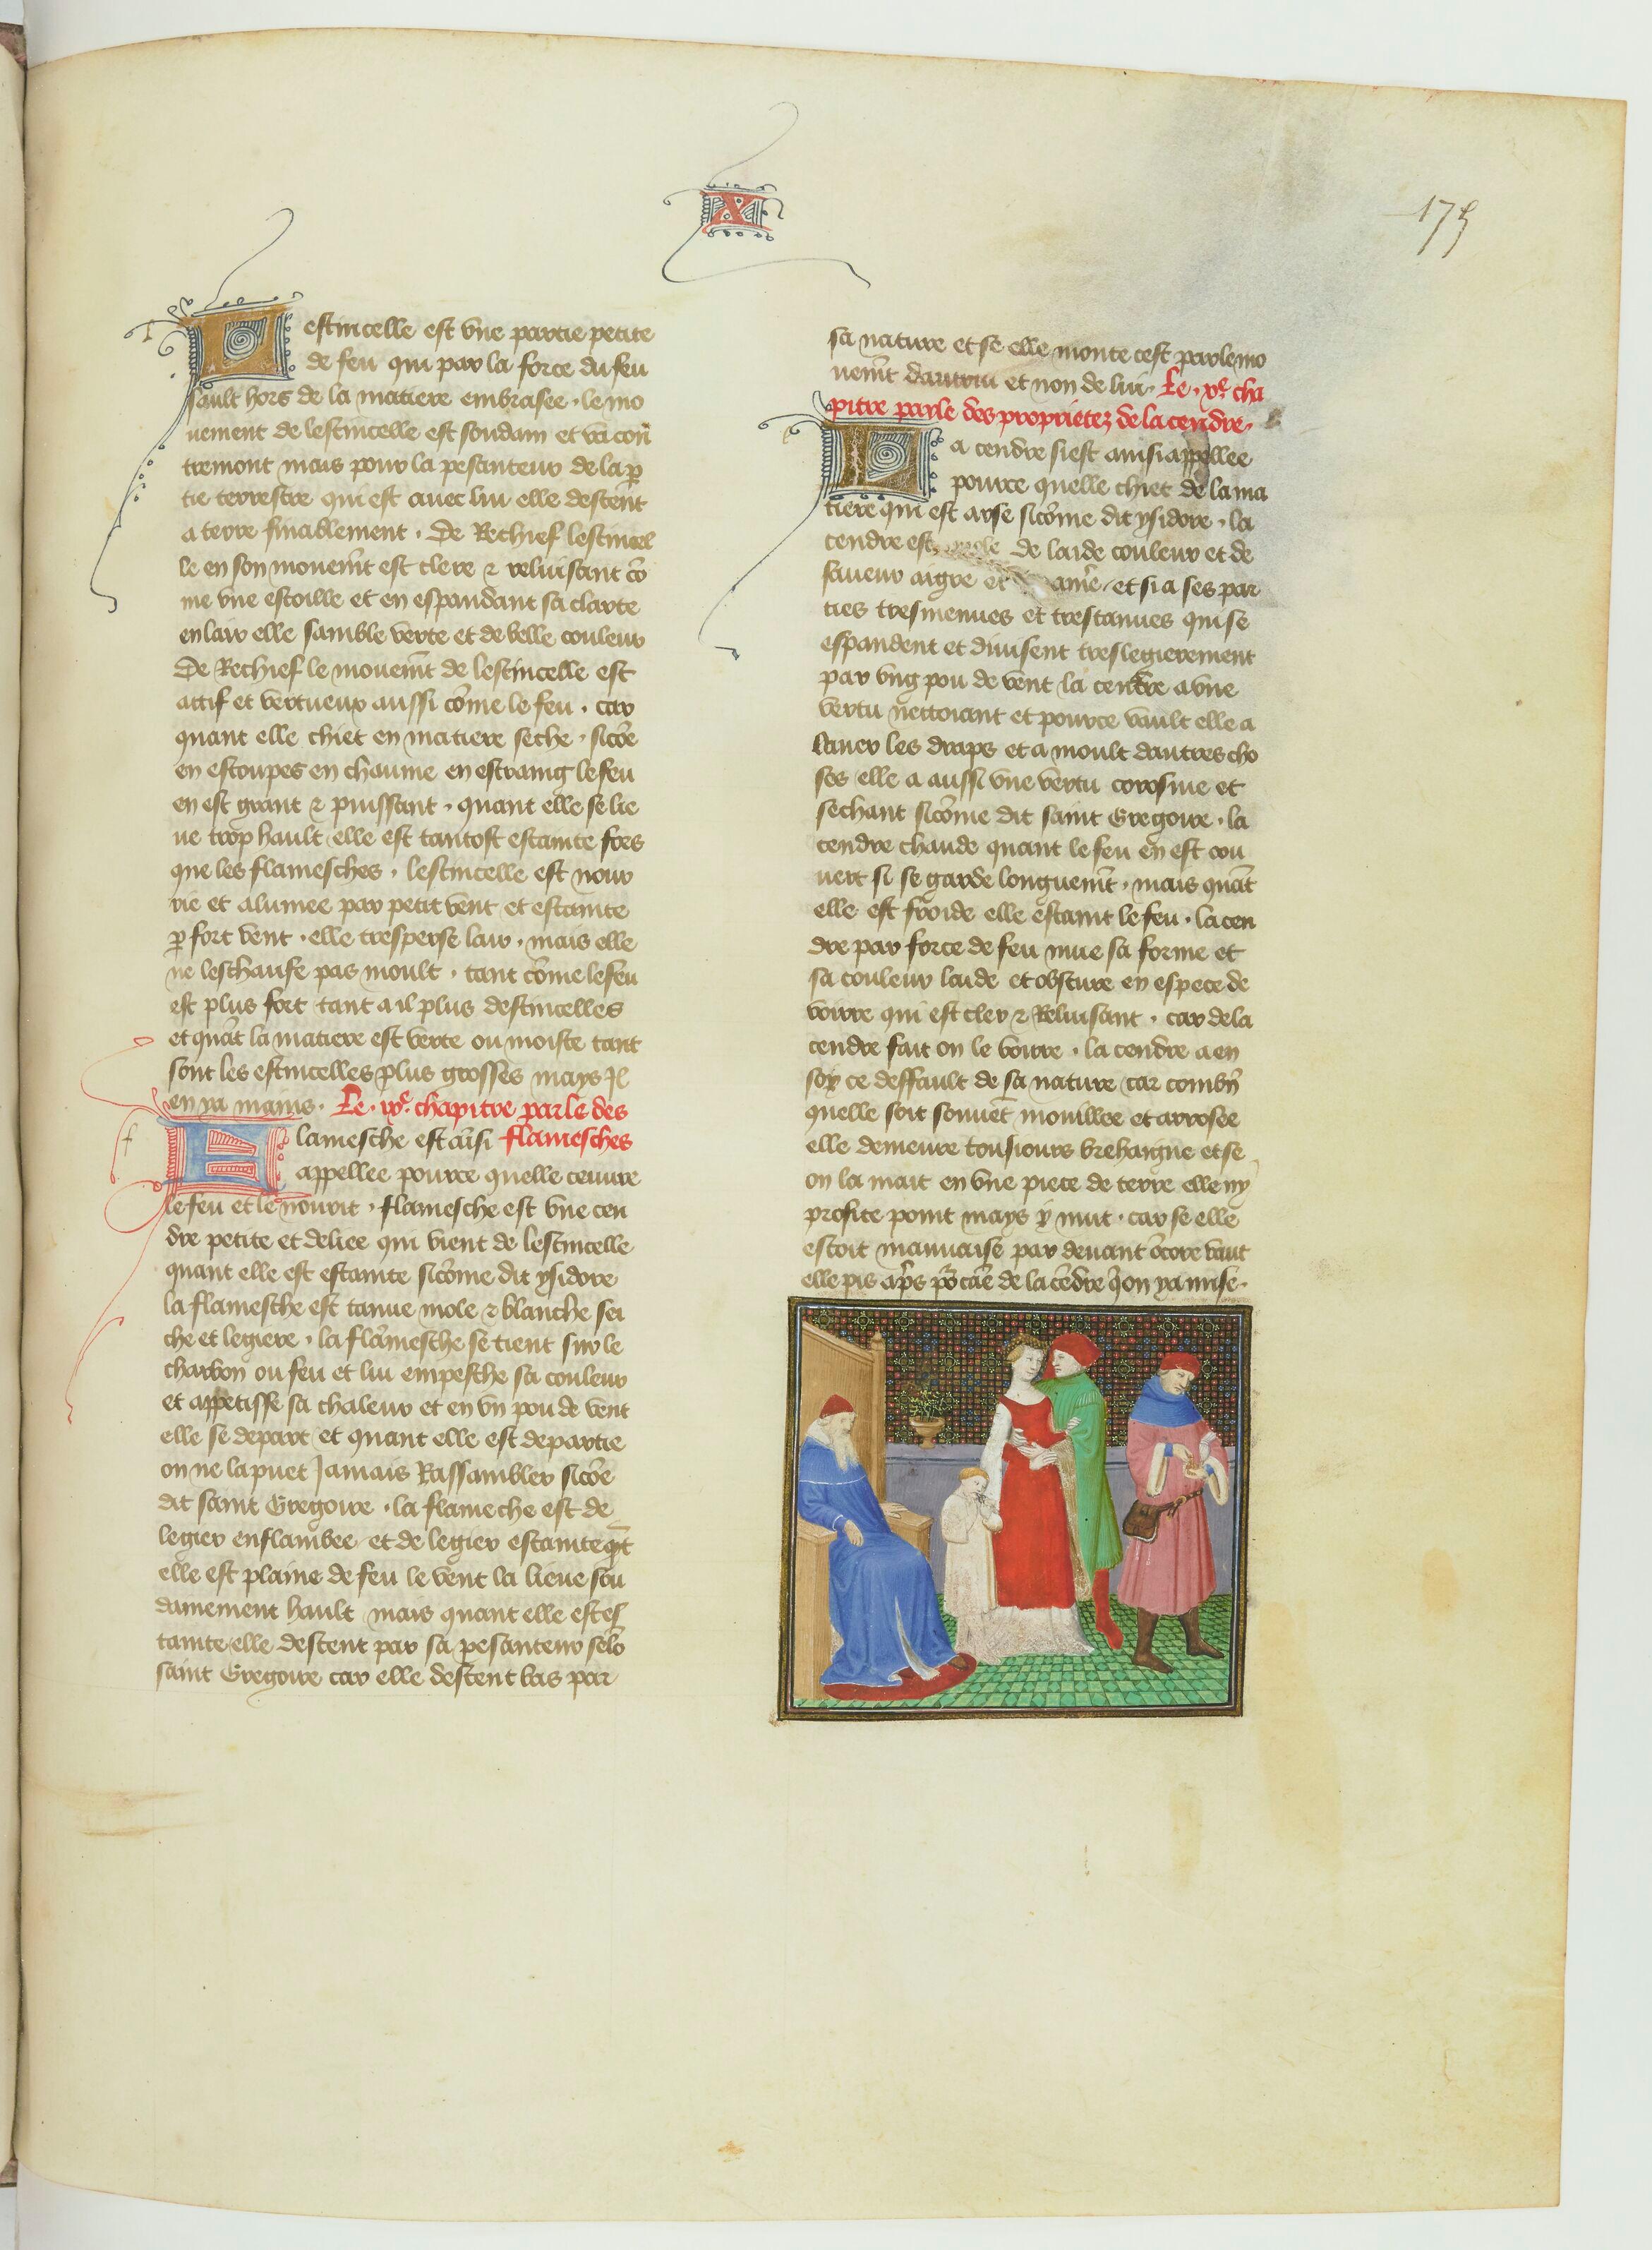 X
175
Lestincelle est vne partie petite
de feu qui par la force du feu
sault hors de la matiere embrasee · le mo
uement de lestincelle est soudain et va con̄
tremont mais pour la pesanteur de la p̱
tie terrestre qui est auec lui elle descent
a terre finablement · De Rechief lestincel
le en son mouem̄t est clere ⁊ reluisant cō
me vne estoille et en espandant sa clarte
en lair elle samble verte et de belle couleur
De Rechief le mouem̄t de lestincelle est
actif et vertueux aussi cōme le feu · car
quant elle chiet en matiere seche · sicōe
en estoupes en chaume en estraing le feu
en est grant ⁊ puissant · quant elle se lie
ue trop hault elle est tantost estainte fors
que les flamesches · lestincelle est nour
rie et alumee par petit vent et estainte
ꝑ fort vent · elle tresperse lair · mais elle
ne leschaufe pas moult · tant cōme le feu
est plus fort tant a il plus destincelles
et quāt la matiere est verte ou moiste tant
sont les estincelles plus grosses mays Jl
en ya mains · Le · ixͤ · chapitre parle des
flamesches
Flamesche est aīsi
appellee pource quelle cueuure
le feu et le nourit · flamesche est vne cen
dre petite et deliee qui vient de lestincelle
quant elle est estainte sicōme dit ysidore
la flamesche est tanue mole ⁊ blanche sei
che et legiere · la flamesche se tient sur le
charbon ou feu et lui empesche sa couleur
et appetisse sa chaleur et en vn pou de vent
elle se depart et quant elle est departie
on ne la puet Jamais Rassambler sicōe
dit saint Gregoire · la flameche est de
legier enflambee et de legier estainte q̄t
elle est plaine de feu le vent la lieue sou
damement hault mais quant elle est es
tainte elle descent par sa pesanteur selō
saint Gregoire car elle descent bas par
sa nature et se elle monte cest par le mo
uem̄t dautrui et non de lui · Le · xͤ · cha
pitre parle des proprietez de la cendre ·
La cendre si est ainsi appellee
pource quelle chiet de la ma
tiere qui est arse sicōme dit ysidore · la
cendre est mole de laide couleur et de
saueur aigre et amere · et si a ses par
ties tresmenues et trestanues qui se
espandent et diuisent treslegierement
par vng pou de vent la cendre a vne
vertu nettoiant et pource vault elle a
lauer les draps et a moult dautres cho
ses elle a aussi vne vertu corosiue et
sechant sicōme dit saint Gregoire · la
cendre chaude quant le feu en est cou
uert si se garde longuem̄t · mais quāt
elle est froide elle estaint le feu · la cen
dre par force de feu mue sa forme et
sa couleur laide et obscure en espece de
voirre qui est cler ⁊ Reluisant · car de la
cendre fait on le voirre · la cendre a en
soy ce deffault de sa nature car combn̄
quelle soit souuēt mouillee et arrosee
elle demeure tousiours brehaigne et se
on la mait en vne piece de terre elle ny
profite point mays y nuit · car se elle
estoit mauuaise par deuant ēcore vaut
elle pis ap̄s po᷑ cāe de la cēdre q̄ on ya mise ·